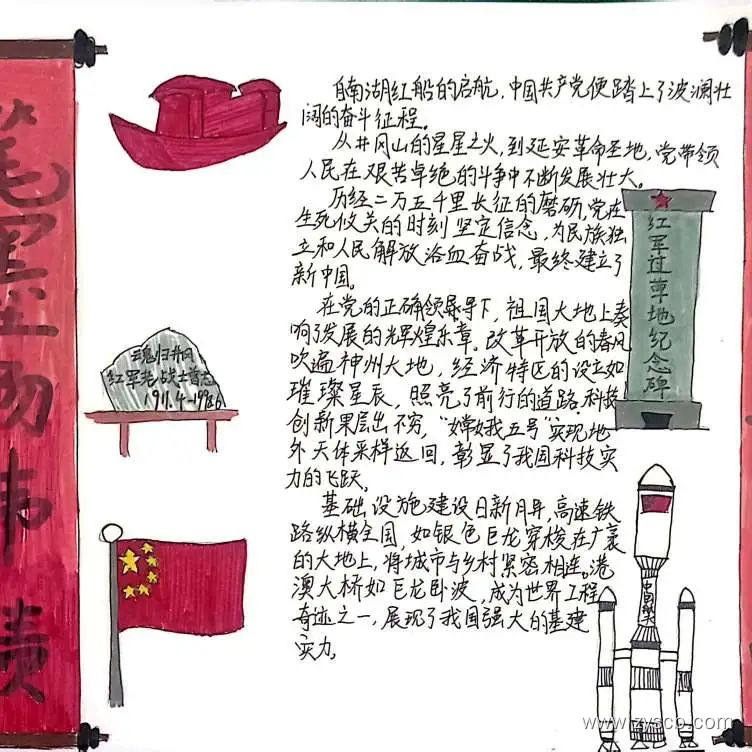 自南湖红船的启航，中国共产党便踏上了波澜壮
阔的奋斗征程。
从井冈山的星星之火，到延安革命圣地，党带领
人民在艰苦卓绝的斗争中不断发展壮大。
历经二万五千里长征的磨砺，党在
生死攸关的时刻坚定信念，为民族独
立和人民解放浴血奋战，最终建立了
新中国。
在党的正确领导下，祖国大地上奏
响了发展的辉煌乐章。改革开放的春风
吹遍神州大地，经济特区的设立如
璀璨星辰，照亮了前行的道路。科技
创新果层出不穷，“嫦娥五号”实现地
外天体采样返回，彰显了我国科技实
力的飞跃。
基础设施建设日新月异，高速铁
路纵横全国，如银色巨龙穿梭在广袤
的大地上，将城市与乡村紧密相连。港
澳大桥如巨龙卧波，成为世界工程
奇迹之一，展现了我国强大的基建
实力。
红军过草地纪念碑
魂归井冈
红军老战士曾志
中国航天
笔墨
伟绩
www.zysco.com